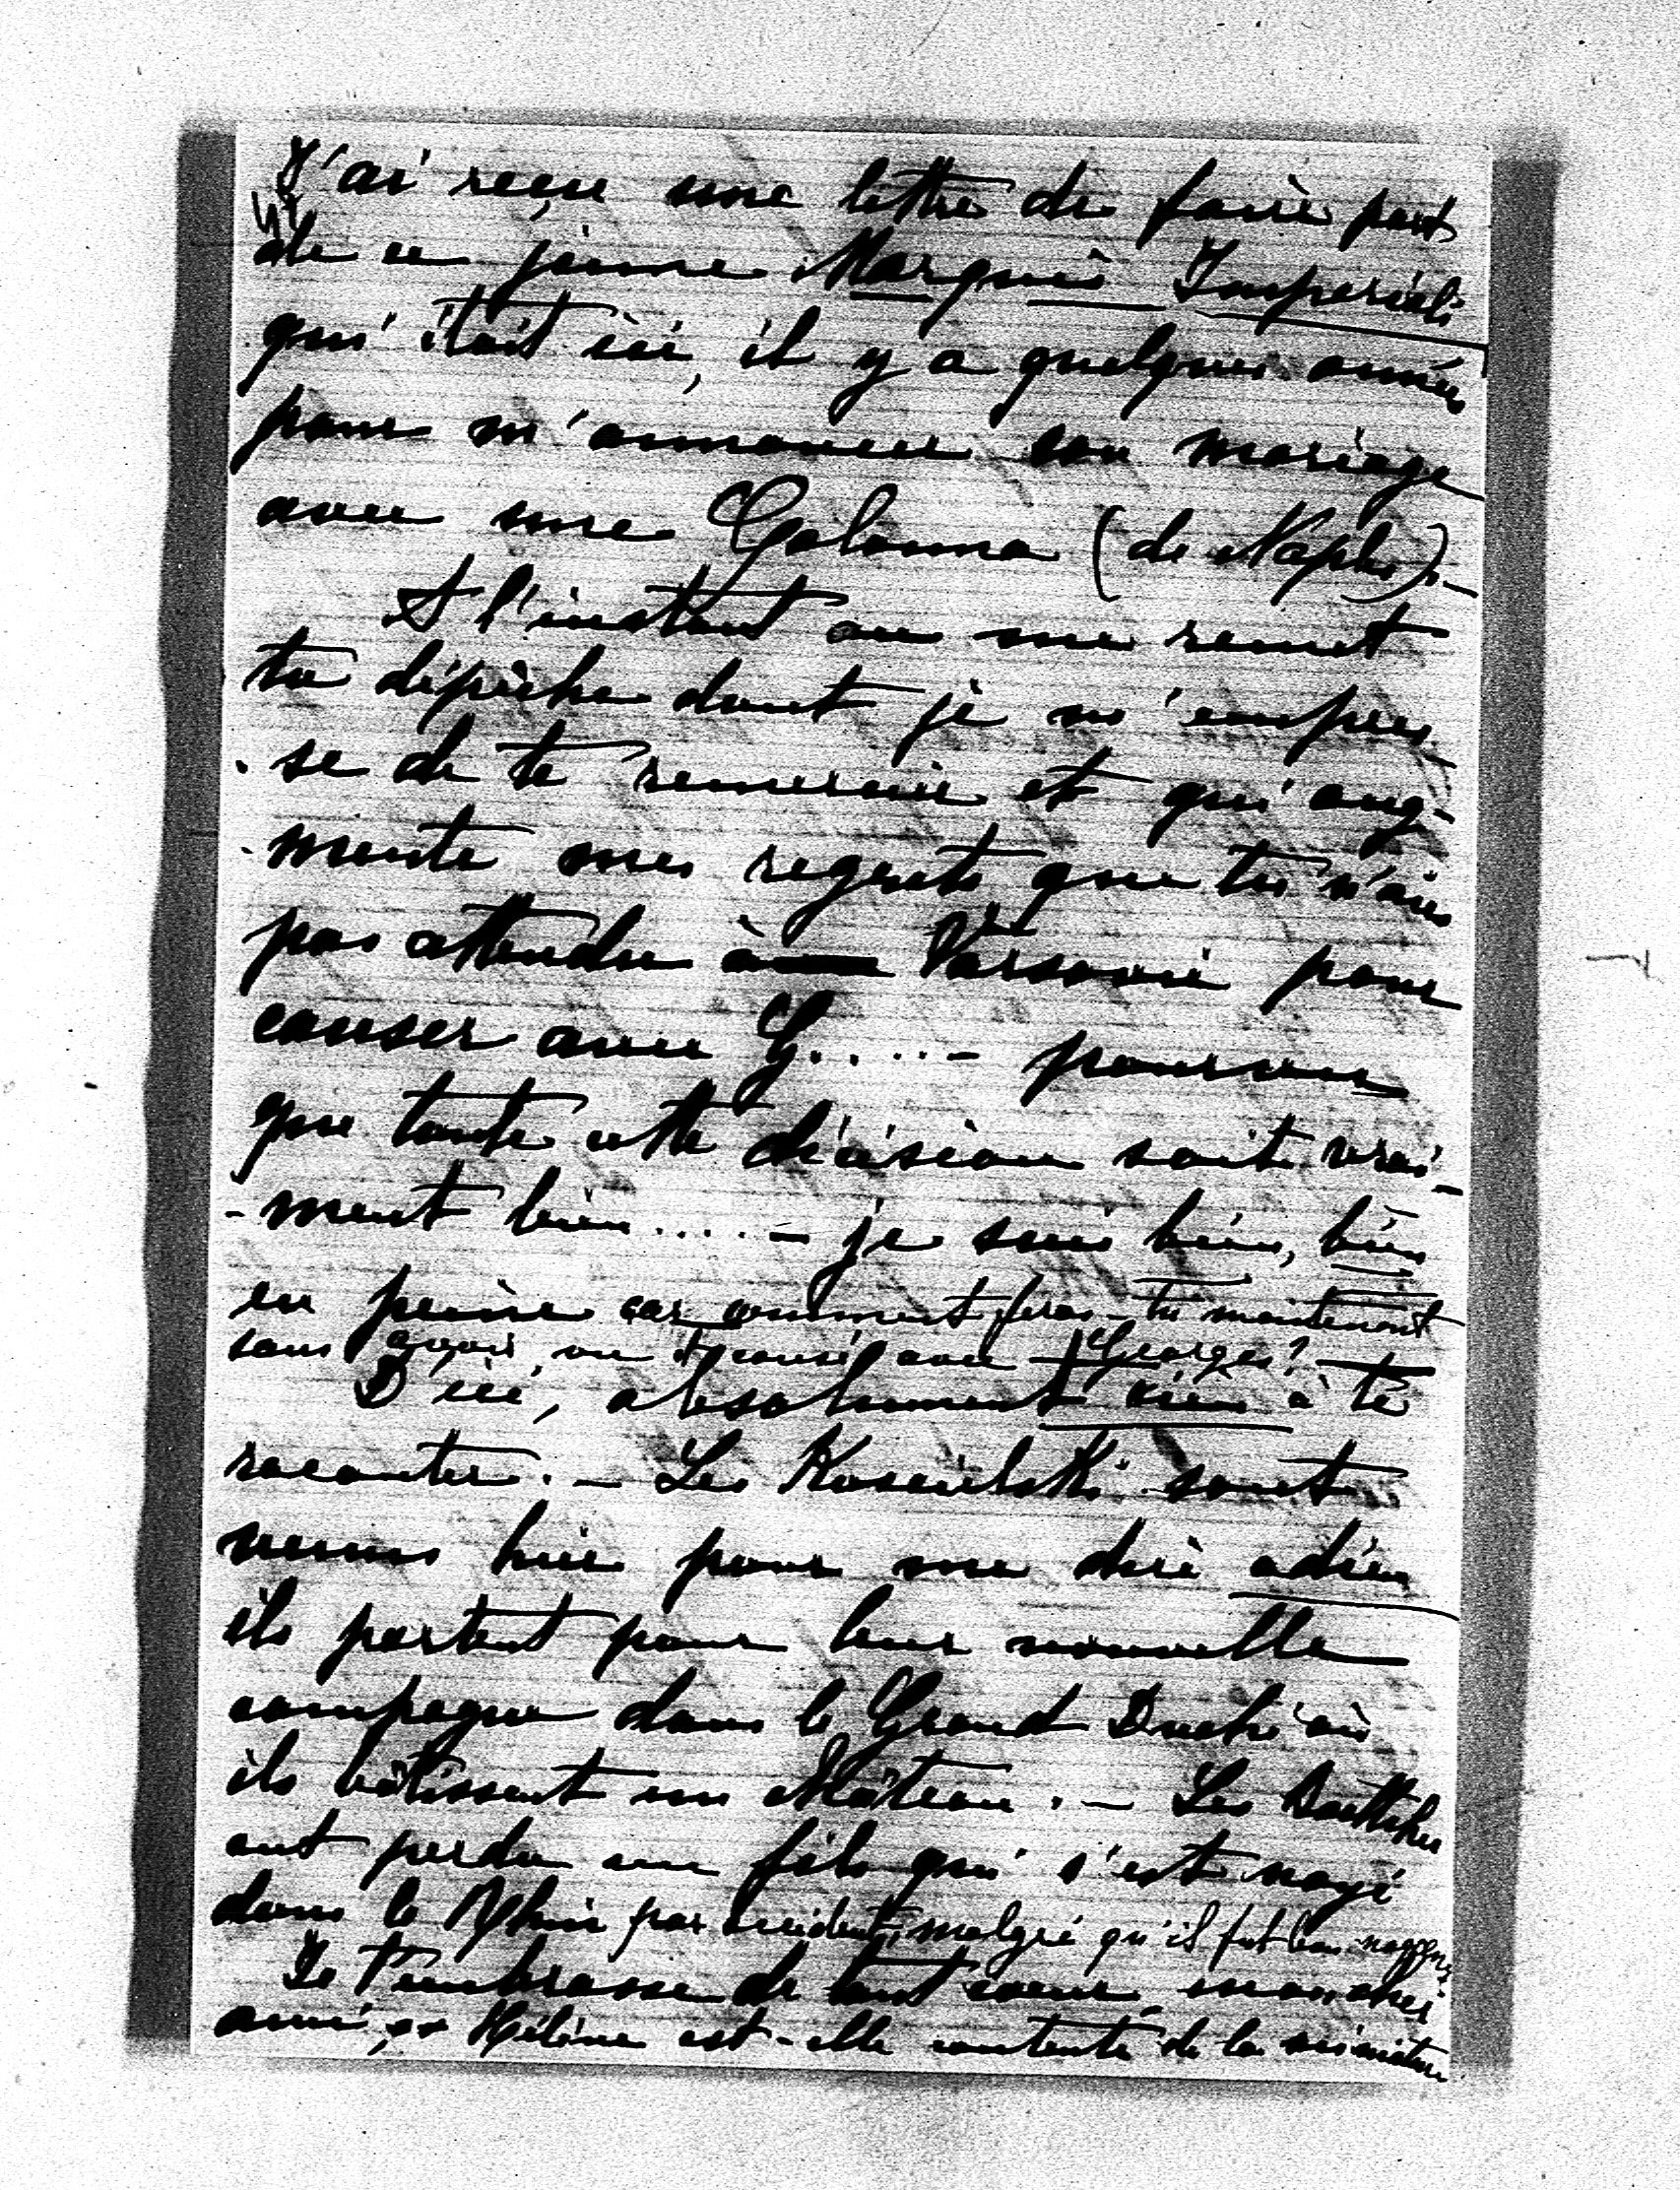 J'ai reçu une lettre de faire part
de ce jeune Marquis Imperiali
qui était ici, il y a quelques années
pour m'annoncer son mariage
avec une Colonna (de Naples). –
A l'instant on me remet
ta dépêche dont je m'empres-
se de te remercier et qui aug-
mente mes regrets que tu n'aies
pas attendu à Varsovie pour
causer avec G..... – pourvu
que toute cette décision soit vrai-
-ment bien ..... – je suis bien, bien
en peine car comment feras-tu maintenant
sans avoir vu et causé avec Georges? –
D'ici, absolument rien à te
raconter. – Les Koscielski sont
venus hier pour me dire adieu
ils partent pour leur nouvelle
campagne dans le Grand Duché où
ils bâtissent un château. – Les Boetticher
ont perdu un fils qui s'est noyé
dans le Rhin par accident, malgré qu'il fut bon nageur.
Je t'embrasse de tout coeur, mon cher
ami, Hélène est-elle contente de la miniature